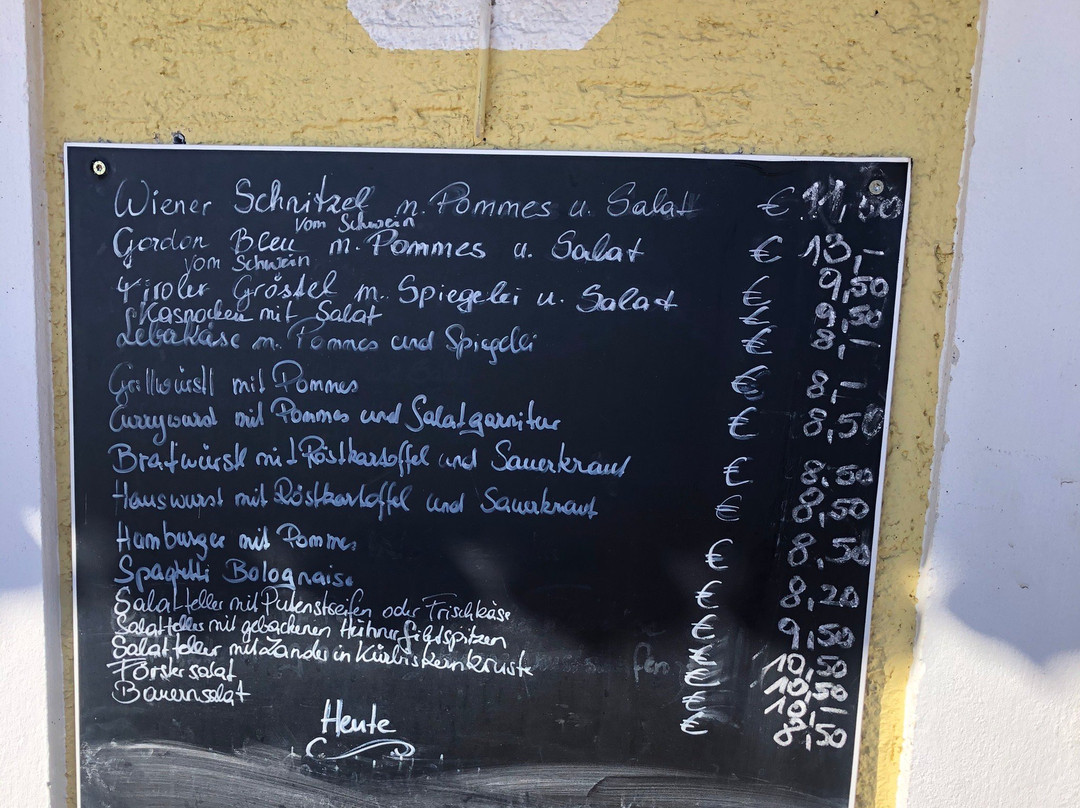 Wiener Schnitzel m. Pommes u. Salat € 11,50
vom Schwein
Gordon Bleu m. Pommes u. Salat € 13,-
vom Schwein
Tiroler Gröstel m. Spiegelei u. Salat € 9,50
Kasnocken mit Salat € 9,50
Leberkäse m. Pommes und Spiegelei € 8,-
Grillwürstl mit Pommes € 8,-
Currywurst mit Pommes und Salatgarnitur € 8,50
Bratwürstl mit Röstkartoffel und Sauerkraut € 8,50
Hauswurst mit Röstkartoffel und Sauerkraut € 8,50
Hamburger mit Pommes € 8,50
Spagetti Bolognaise € 8,20
Salatteller mit Putenstreifen oder Frischkäse € 9,50
Salatteller mit gebackenen Hühnerfiletspitzen € 10,50
Salatteller mit Zander in Kürbiskernkruste € 10,50
Förstersalat € 10,-
Bauernsalat € 8,50
Heute